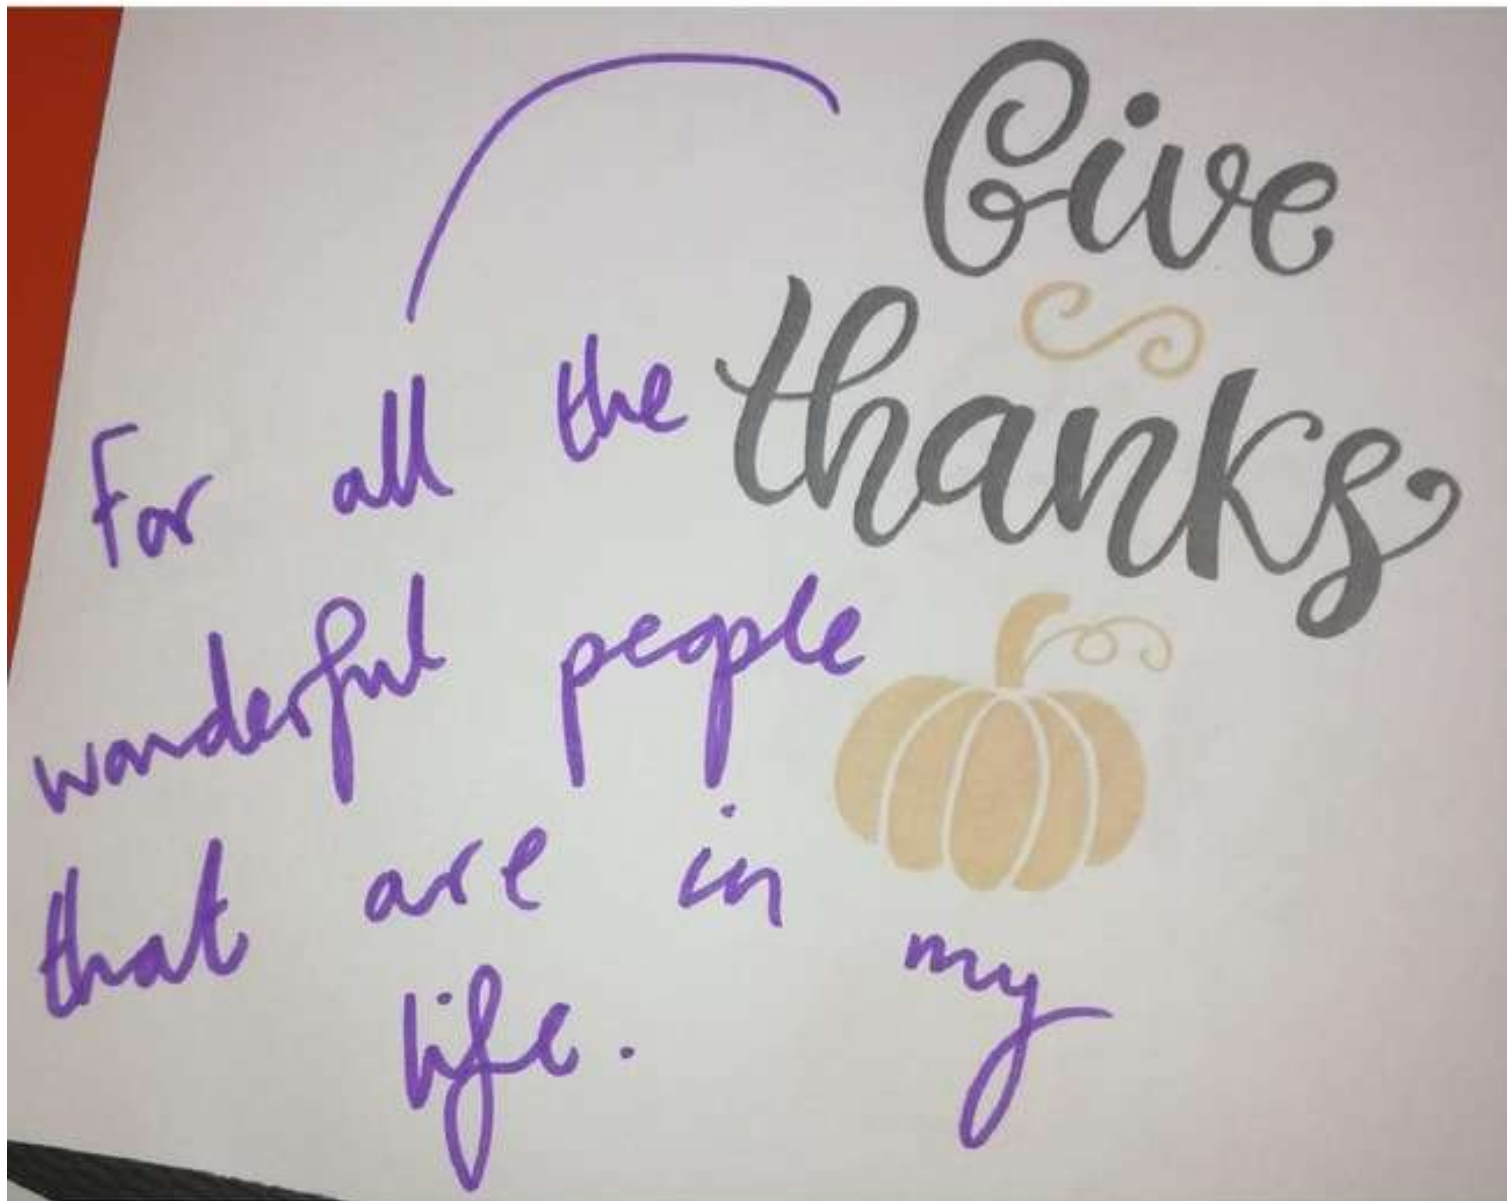 Give
thanks
For all the
wonderful people
that are in my
life.